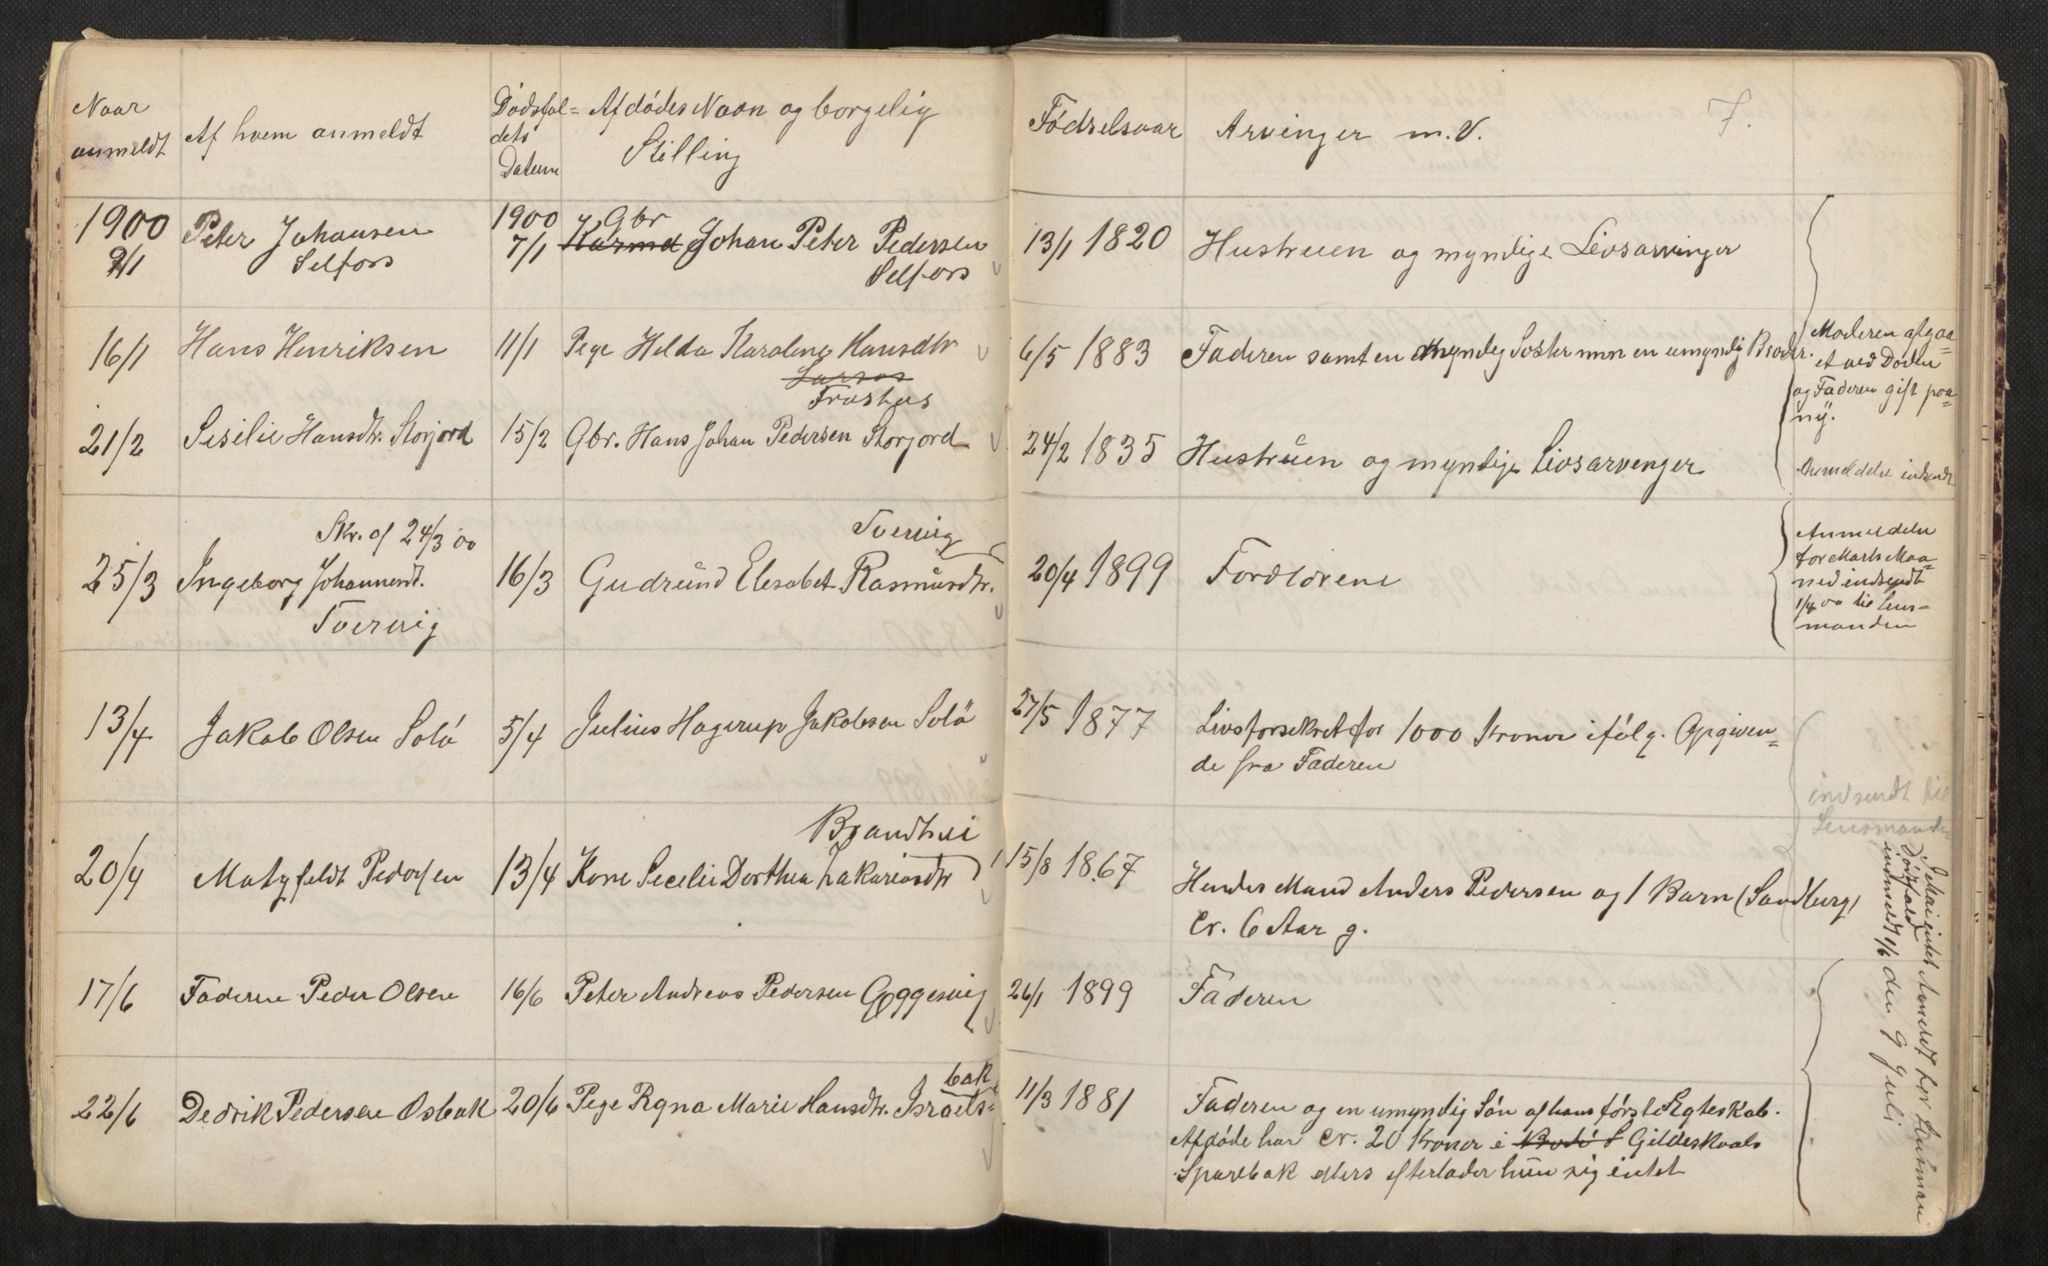 Naar anmeldt
Af hvem anmeldt
Dødsfal=
dets
Datum
Afdødes Navn og borgelig
Stilling
Fødselsaar
Arvinger m. V.
7.
1900
9/1
Peter Johansen
Selfors
1900
7/1
Gbr
Karmd Johan Peter Pedersen
Selfors
13/1 1820
Hustruen og myndige Livsarvinger
16/1
Hans Henriksen
11/1
Pige Hilda Karoline Hansdtr
Frøshus
6/5 1883
Faderen samt en myndig Søster men en umyndig Broder.
Moderen afgaa=
et ved Døden
og Faderen gift paa
ny.
21/2
Sisilie Hansdtr. Storjord
15/2
Gbr. Hans Johan Pedersen Storjord
24/2 1835
Hustruen og myndige Livsarvenger
Anmeldelse indsendt
25/3
Skr. af 24/3 00
Ingeborg Johannesdt.
Tvervig
16/3
Tvervig
Gudrund Elesabet Rasmusdtr.
20/4 1899
Forældrene
Anmeldelse
for Marts Maa=
ned indsendt
1/4 00 til Lens=
manden
13/4
Jakob Olsen Solø
5/4
Julius Hagerup Jakobsen Solø
27/5 1877
Livsforsekret for 1000 Kroner ifølg. Opgiven=
de fra Faderen
indsendt til
Lensmanden
20/4
Matyfeldt Pedersen
13/4
Brandtsei
Kone Secelie Dorthea Zakariasdtr
15/8 1867
Hendes Mand Anders Pedersen og 1 Barn (Sandburg)
cr. 6 Aar g.
17/6
Faderen Peder Olsen
16/6
Peter Andreas Pedersen Gyggesvig
26/1 1899
Faderen
I Mai intet Anmeldt for Lensman
dødsfald
indmeldt 1/6 den 9 Juli
22/6
Dedrik Pedersen Osbak
20/6
bak
Pige Ragna Marie Hansdtr. Israels=
11/3 1881
Faderen og en umyndig Søn af hans første Egteskab.
Afdøde har cr. 20 Kroner i Bodø S Gildeskaals
Sparebak ellers efterlader hun sig intet